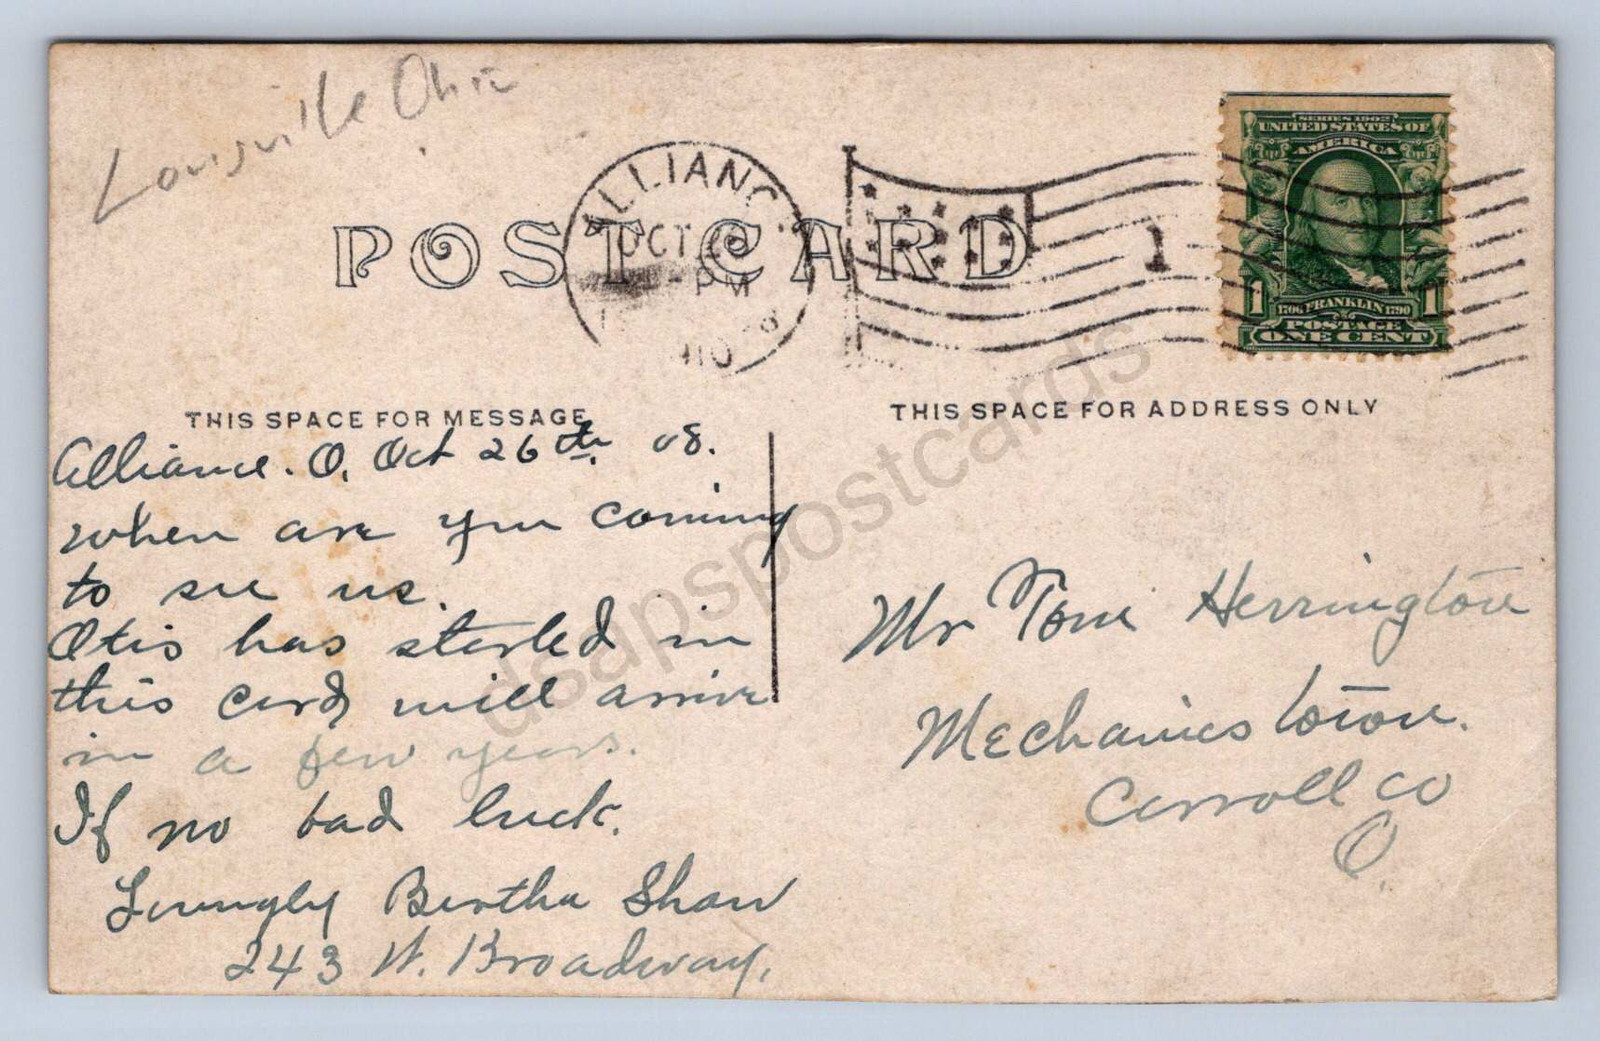 Louisville Ohio
ALLIANC
OCT 26
PM
8
SERIES 1902
UNITED STATES OF
AMERICA
1
1706 FRANKLIN 1790
1
POSTAGE
ONE CENT
1
POST CARD
THIS SPACE FOR MESSAGE
THIS SPACE FOR ADDRESS ONLY
Alliance. O. Oct 26th. 08.
When are you coming
to see us.
Otis has started in
this card will arrive
in a few years.
If no bad luck.
Lovingly Bertha Shaw
243 W. Broadway.
Mr Tom Herrington
Mechanicstown.
Carroll Co
O.
dsapspostcards